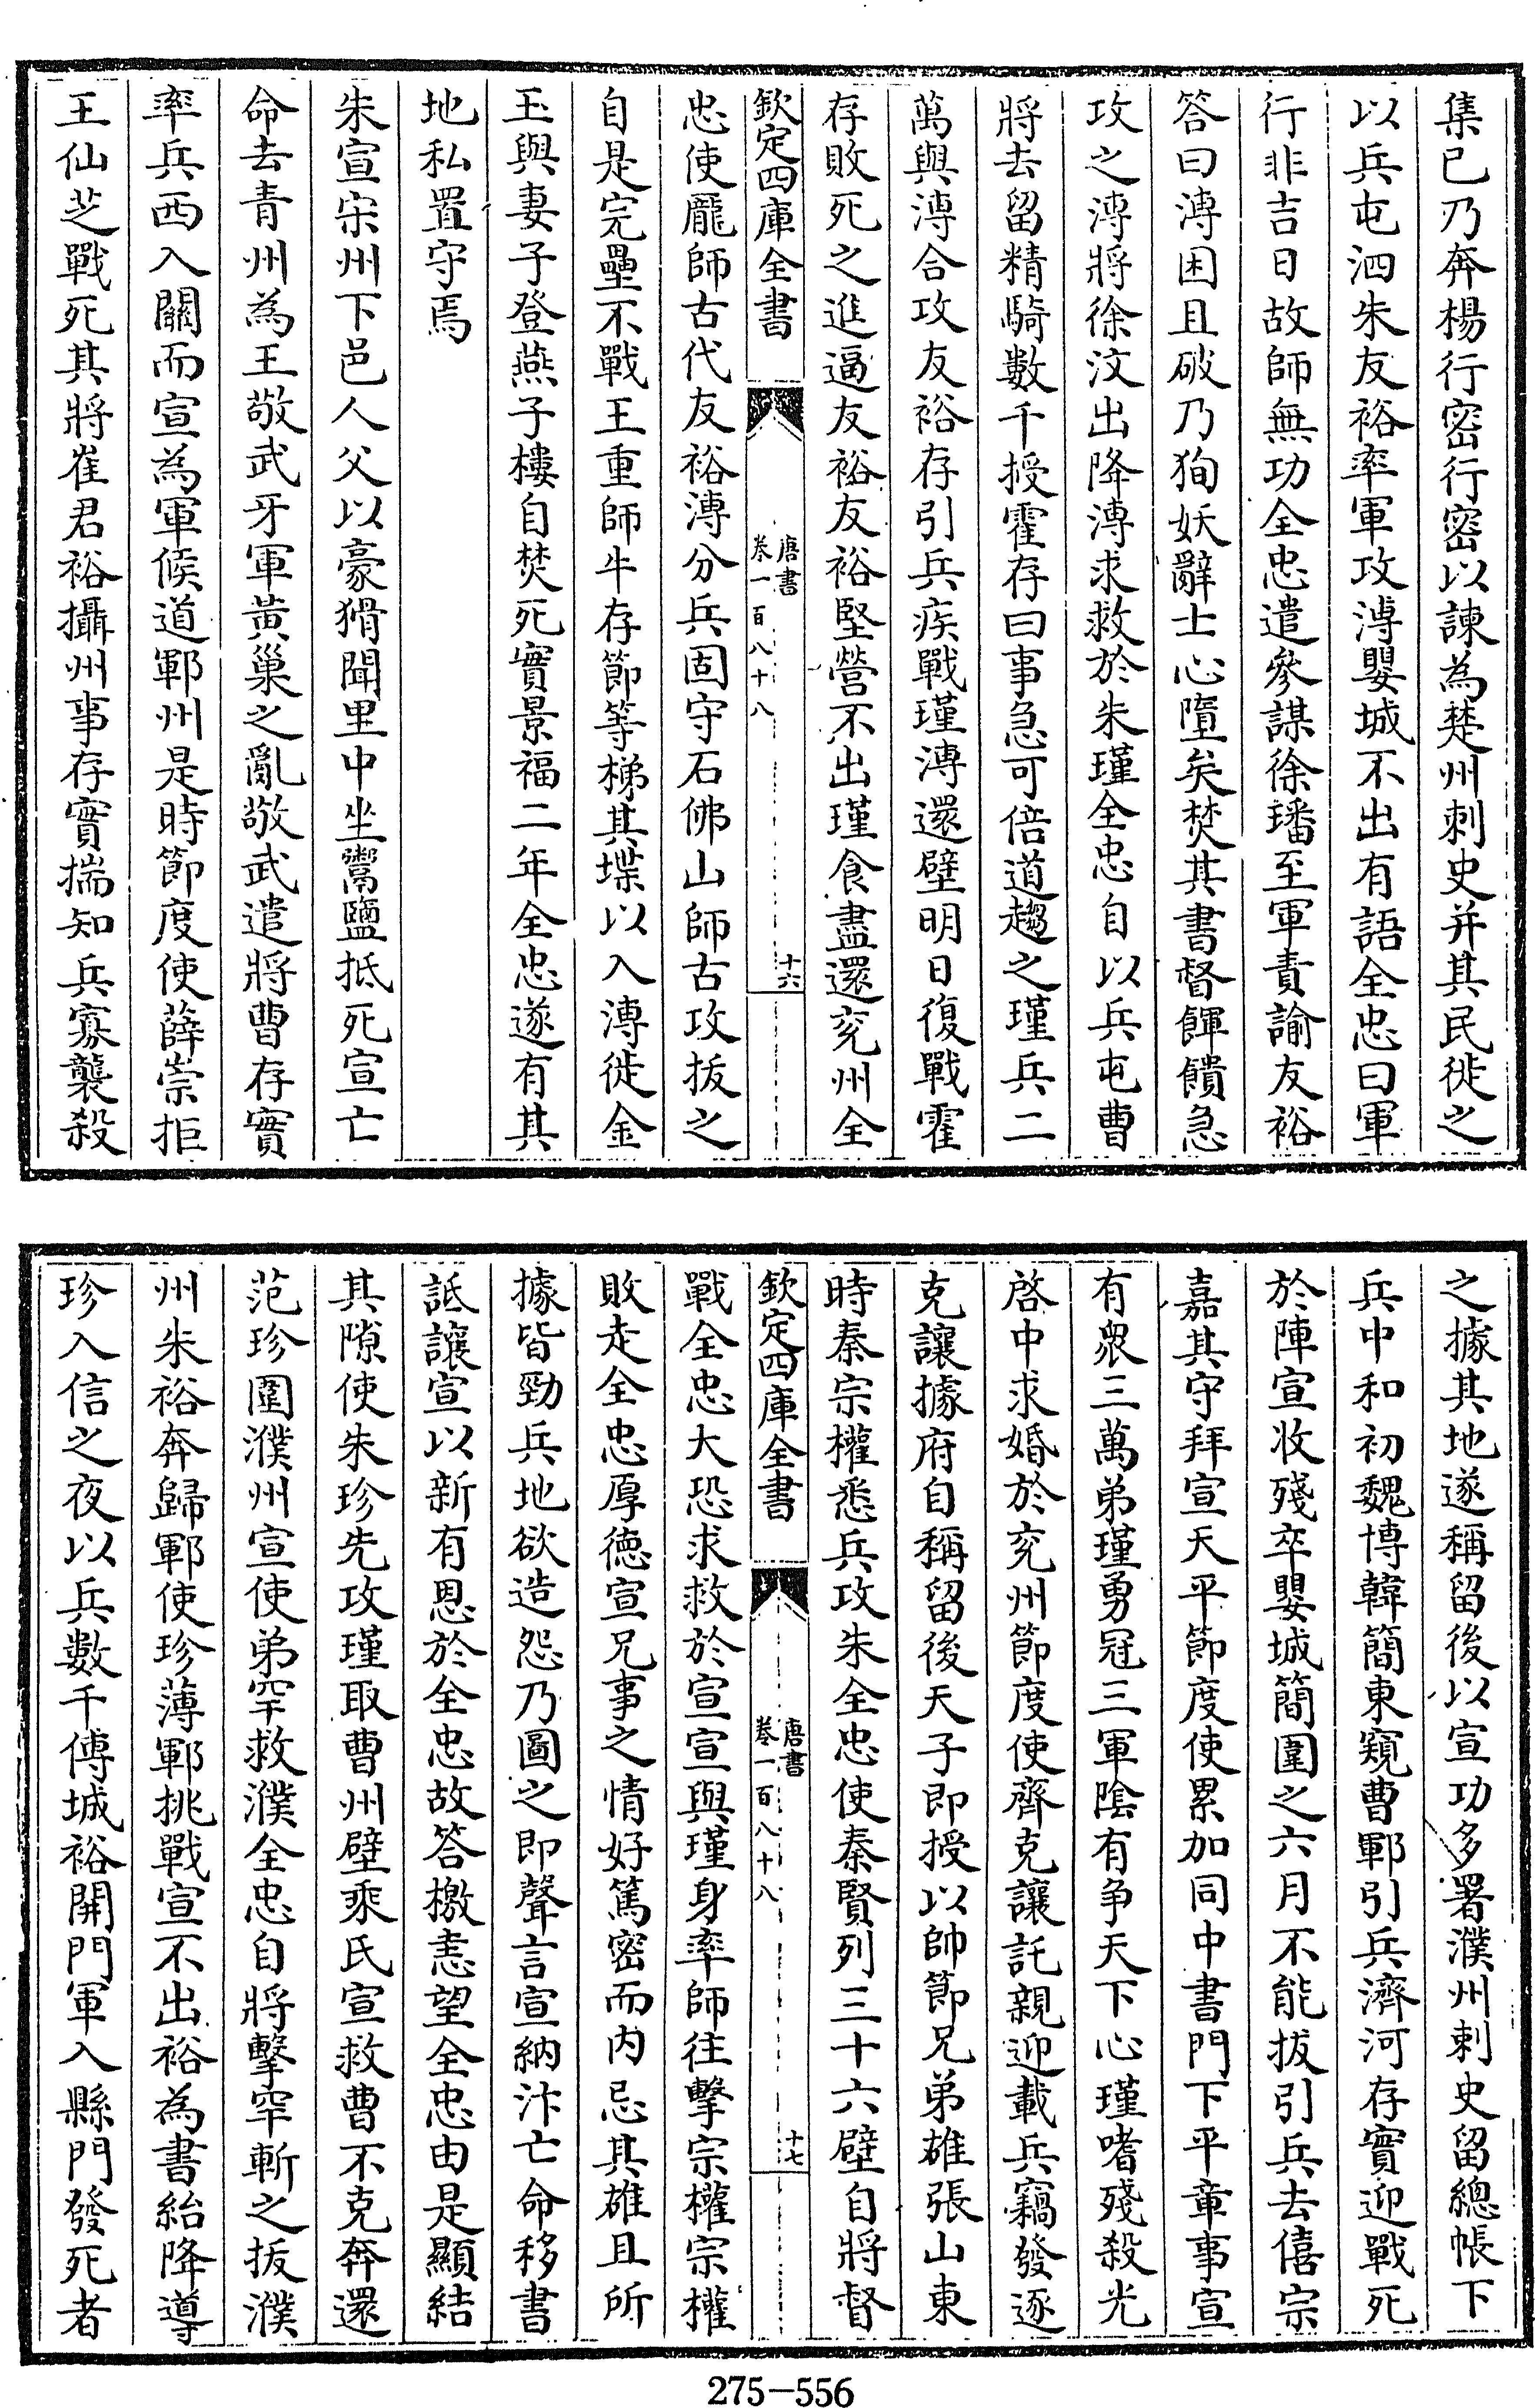 集已乃奔楊行密行密以諫為楚州刺史并其民徙之
以兵屯泗朱友裕率軍攻溥嬰城不出有語全忠曰軍
行非吉日故師無功全忠遣參謀徐璠至軍責諭友裕
答曰溥困且破乃狥妖辭士心墮矣焚其書督餫饋急
攻之溥將徐汶出降溥求救於朱瑾全忠自以兵屯曹
將去留精騎數千授霍存曰事急可倍道趨之瑾兵二
萬與溥合攻友裕存引兵疾戰瑾溥還壁明日復戰霍
存敗死之進逼友裕友裕堅營不出瑾食盡還兖州全
欽定四庫全書
唐書
卷一百八十八
十六
忠使龎師古代友裕溥分兵固守石佛山師古攻拔之
自是完壘不戰王重師牛存節等梯其堞以入溥徙金
玉與妻子登燕子樓自焚死實景福二年全忠遂有其
地私置守焉
朱宣宋州下邑人父以豪猾聞里中坐鬻鹽抵死宣亡
命去青州為王敬武牙軍黃巢之亂敬武遣將曹存實
率兵西入關而宣為軍候道鄆州是時節度使薛崇拒
王仙芝戰死其將崔君裕攝州事存實揣知兵寡襲殺
之據其地遂稱留後以宣功多署濮州刺史留總帳下
兵中和初魏博韓簡東窺曹鄆引兵濟河存實迎戰死
於陣宣收殘卒嬰城簡圍之六月不能拔引兵去僖宗
嘉其守拜宣天平節度使累加同中書門下平章事宣
有衆三萬弟瑾勇冠三軍陰有争天下心瑾嗜殘殺光
啓中求婚於兖州節度使齊克讓託親迎載兵竊發逐
克讓據府自稱留後天子即授以帥節兄弟雄張山東
時秦宗權悉兵攻朱全忠使秦賢列三十六壁自將督
欽定四庫全書
唐書
卷一百八十八
十七
戰全忠大恐求救於宣宣與瑾身率師往擊宗權宗權
敗走全忠厚德宣兄事之情好篤密而内忌其雄且所
據皆勁兵地欲造怨乃圖之即聲言宣納汴亡命移書
詆讓宣以新有恩於全忠故答檄恚望全忠由是顯結
其隙使朱珍先攻瑾取曹州壁乘氏宣救曹不克奔還
范珍圍濮州宣使弟罕救濮全忠自將擊罕斬之拔濮
州朱裕奔歸鄆使珍薄鄆挑戰宣不出裕為書紿降導
珍入信之夜以兵數千傅城裕開門軍入縣門發死者
275-556